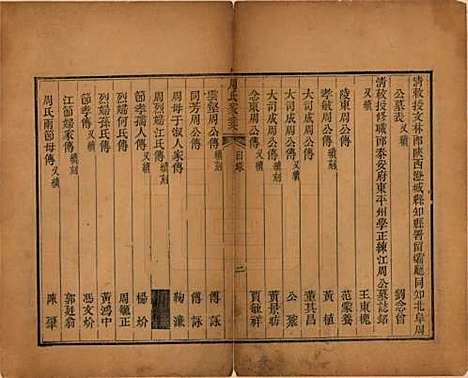 清敕授文林郎陝西澄城縣知縣晉留霸廳同知北阜周
公墓表 又續 劉念曾
清敕授修職郎泰安府東平州學正練江周公墓誌銘
又續 王東槐
陵東周公傳 又續 范蒙養
孝敏周公傳 續刻 黃植
大司成周公傳 董其昌
大司成周公傳 續刻 公鼐
念東周公傳 又續 黃景昉
賈毓祥
周氏家集 目錄 二
雲壑周公傳 續刻 傅詠
同芳周公傳 傅詠
周母于淑人家傳 鞠濂
周烈婦江氏傳 續刻
節孝孺人傳 又續 楊玠
烈婦孫氏傳 周毓正
烈婦何氏傳 又續 黃鴻中
節孝傳 又續 馮文炌
江節婦家傳 續刻 郭廷翕
周氏兩節母傳 又續